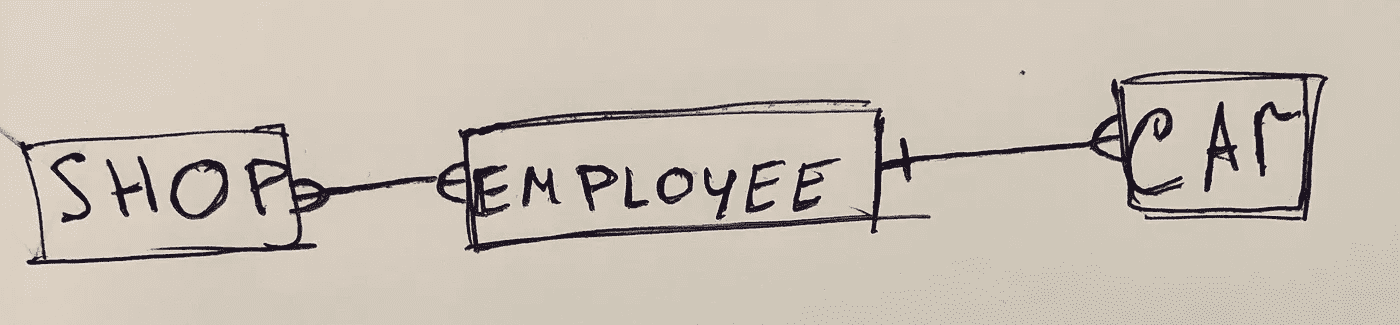 SHOP
EMPLOYEE
CAR